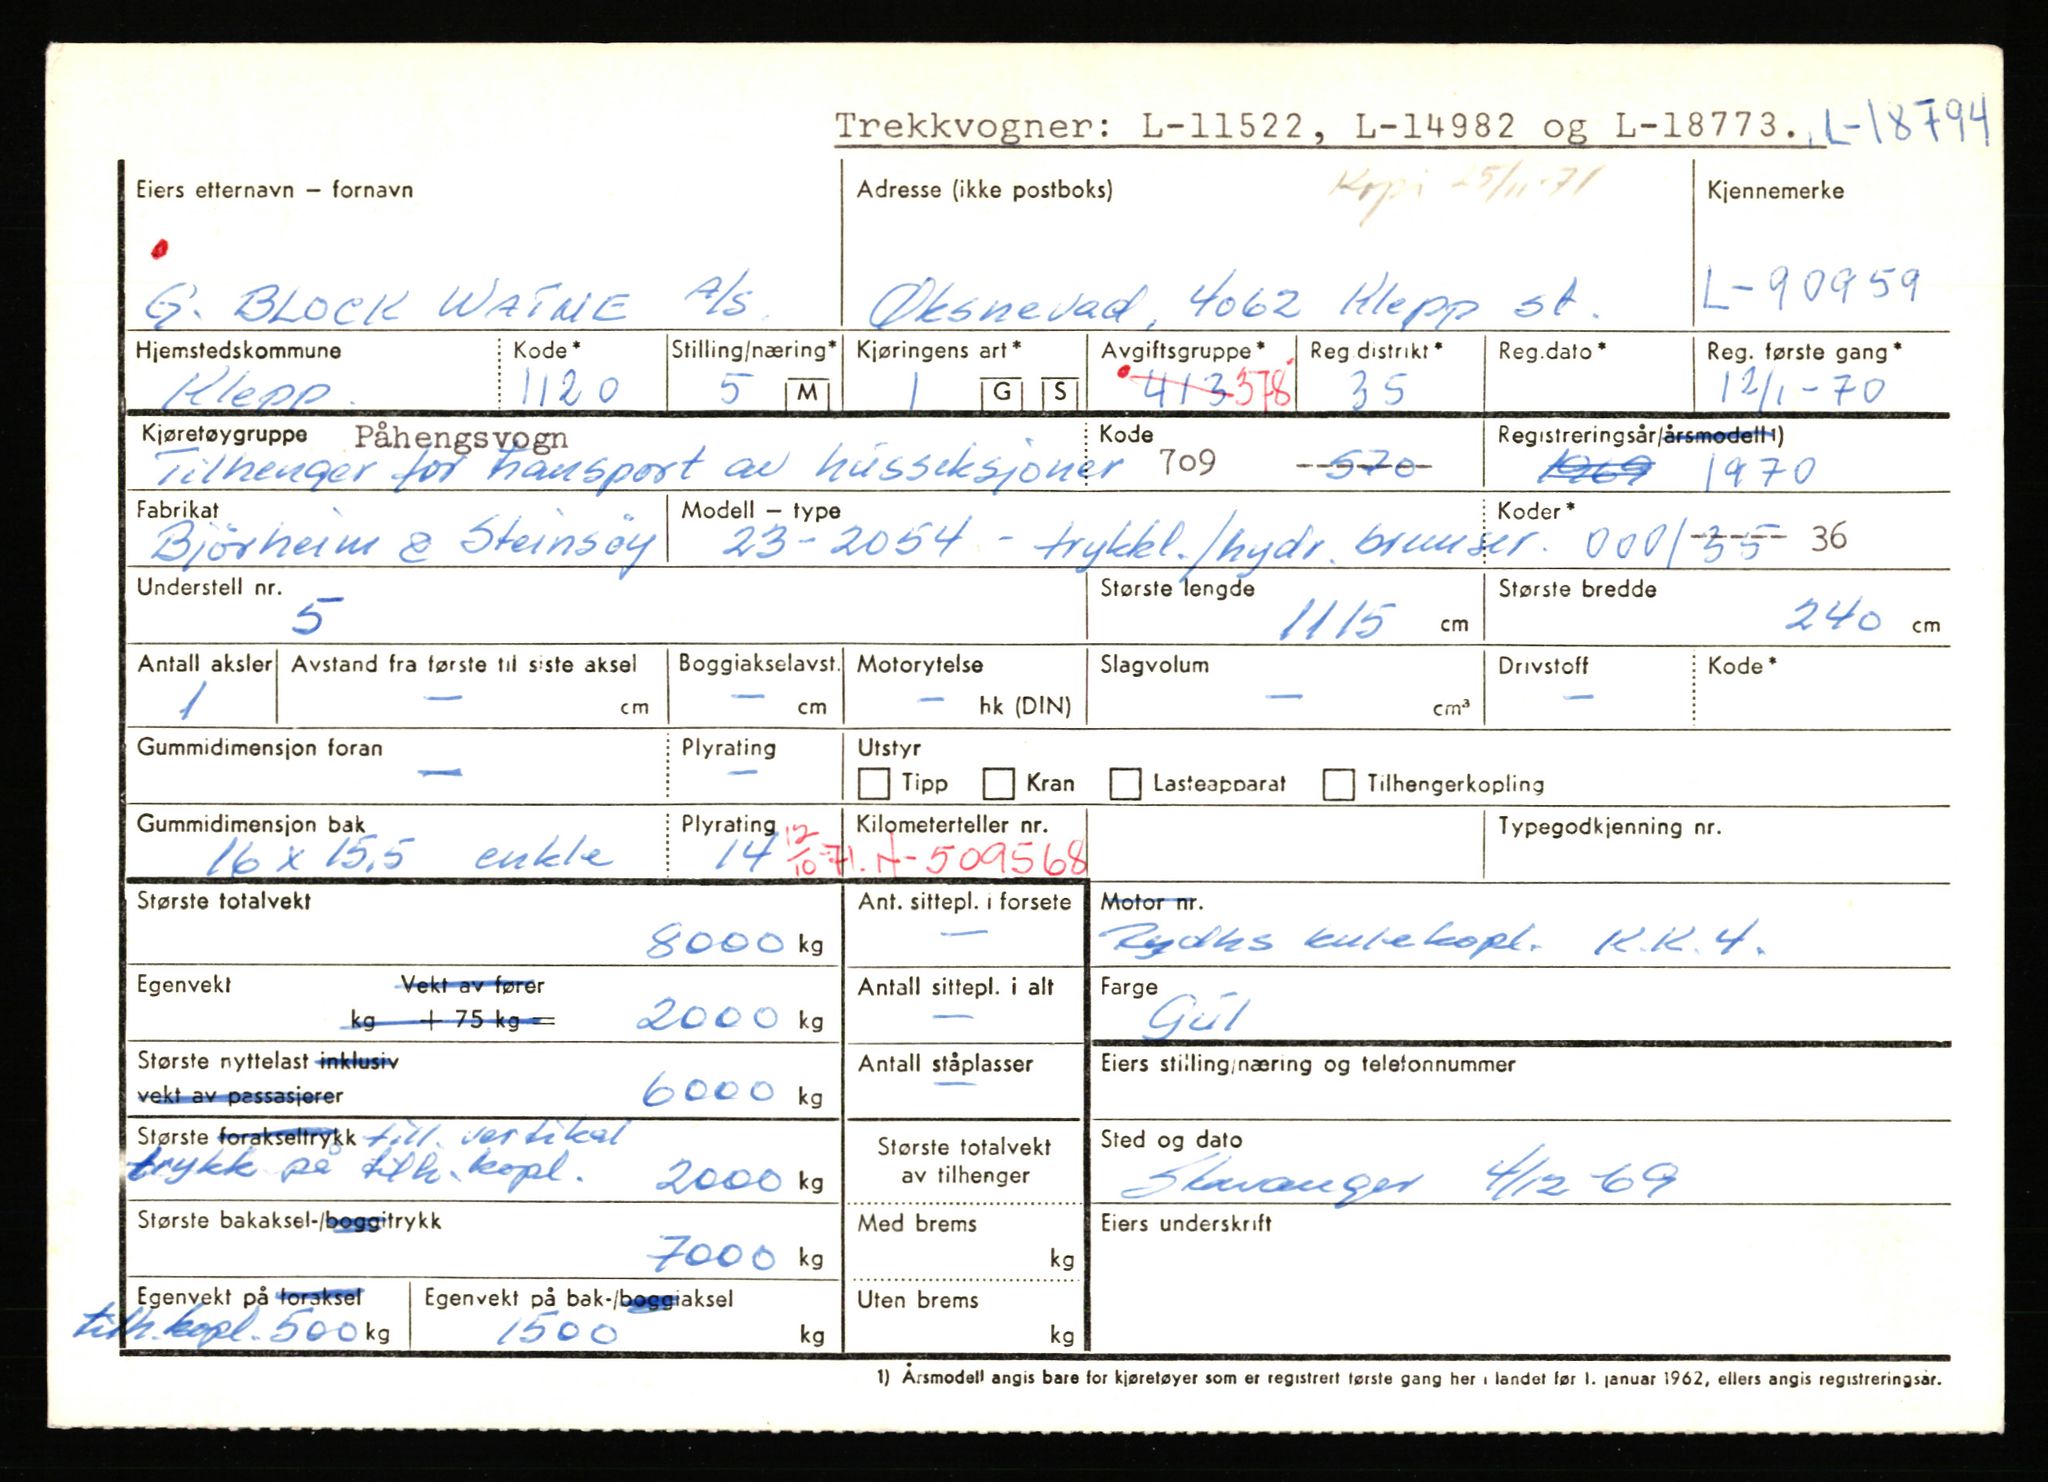 Trekkvogner: L-11522, L-14982 og L-18773., L-18794
Eiers etternavn – fornavn
Adresse (ikke postboks)
Kopi 25/11-71
Kjennemerke
G. BLOCK WATNE A/S.
Øksnevad, 4062 Klepp st.
L-90959
Hjemstedskommune Kode* Stilling/næring* Kjøringens art* Avgiftsgruppe* Reg.distrikt* Reg.dato* Reg. første gang*
Klepp. 1120 5 M 1 G S 413 378 35 12/1-70
Kjøretøygruppe Påhengsvogn Kode Registreringsår/årsmodell 1)
Tilhenger for transport av husseksjoner 709 570 1969 1970
Fabrikat Modell – type Koder*
Bjørheim & Steinsøy 23-2054 - trykkl./hydr. bremser. 000/35 36
Understell nr. Største lengde Største bredde
5 1115 cm 240 cm
Antall aksler Avstand fra første til siste aksel Boggiakselavst. Motorytelse Slagvolum Drivstoff Kode*
1 – cm – cm – hk (DIN) – cm³ –
Gummidimensjon foran Plyrating Utstyr
– – Tipp Kran Lasteapparat Tilhengerkopling
Gummidimensjon bak Plyrating Kilometerteller nr. Typegodkjenning nr.
16 x 15,5 enkle 14 12/10-71. N-509568
Største totalvekt Ant. sittepl. i forsete Motor nr.
8000 kg – Rydhs kulekopl. K.K.4.
Egenvekt Vekt av fører Antall sittepl. i alt Farge
kg + 75 kg = 2000 kg – Gul
Største nyttelast inklusiv Antall ståplasser Eiers stilling/næring og telefonnummer
vekt av passasjerer 6000 kg –
Største forakseltrykk till. vertikal Største totalvekt Sted og dato
trykk på tilh. kopl. 2000 kg av tilhenger Stavanger 4/12-69
Største bakaksel-/boggitrykk Med brems Eiers underskrift
7000 kg kg
Egenvekt på foraksel Egenvekt på bak-/boggiaksel Uten brems
tilh. kopl. 500 kg 1500 kg kg
1) Årsmodell angis bare for kjøretøyer som er registrert første gang her i landet før 1. januar 1962, ellers angis registreringsår.